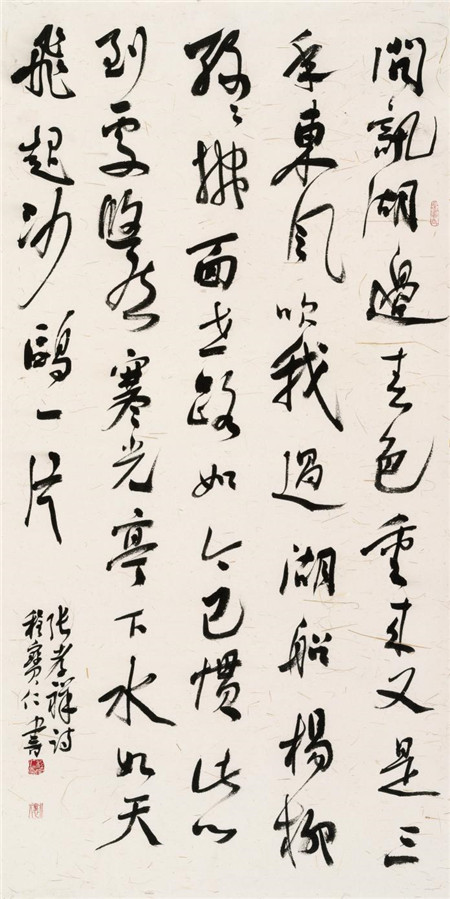 問訊湖邊春色重来又是三
年東風吹我過湖船楊柳
絲々拂面世路如今已慣此心
到處悠然寒光亭下水如天
飛起沙鷗一片
张孝祥诗
程寶仁書